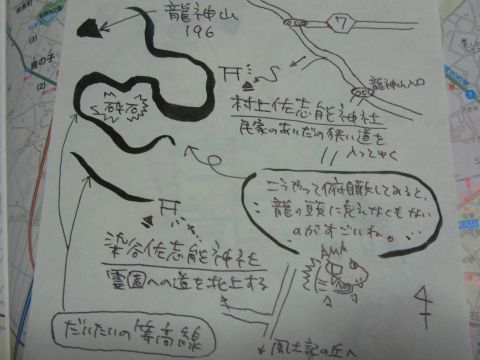 龍神山
196
7
龍神山入口
砕石
村上佐志能神社
民家のあいだの狭い道を
入ってゆく
こうやって俯瞰してみると、
龍の頭に見えなくもない
のがすごいね。
染谷佐志能神社
霊園への道を北上する
だいたいの等高線
風土記の丘へ
鹿の子
(3)
(2)